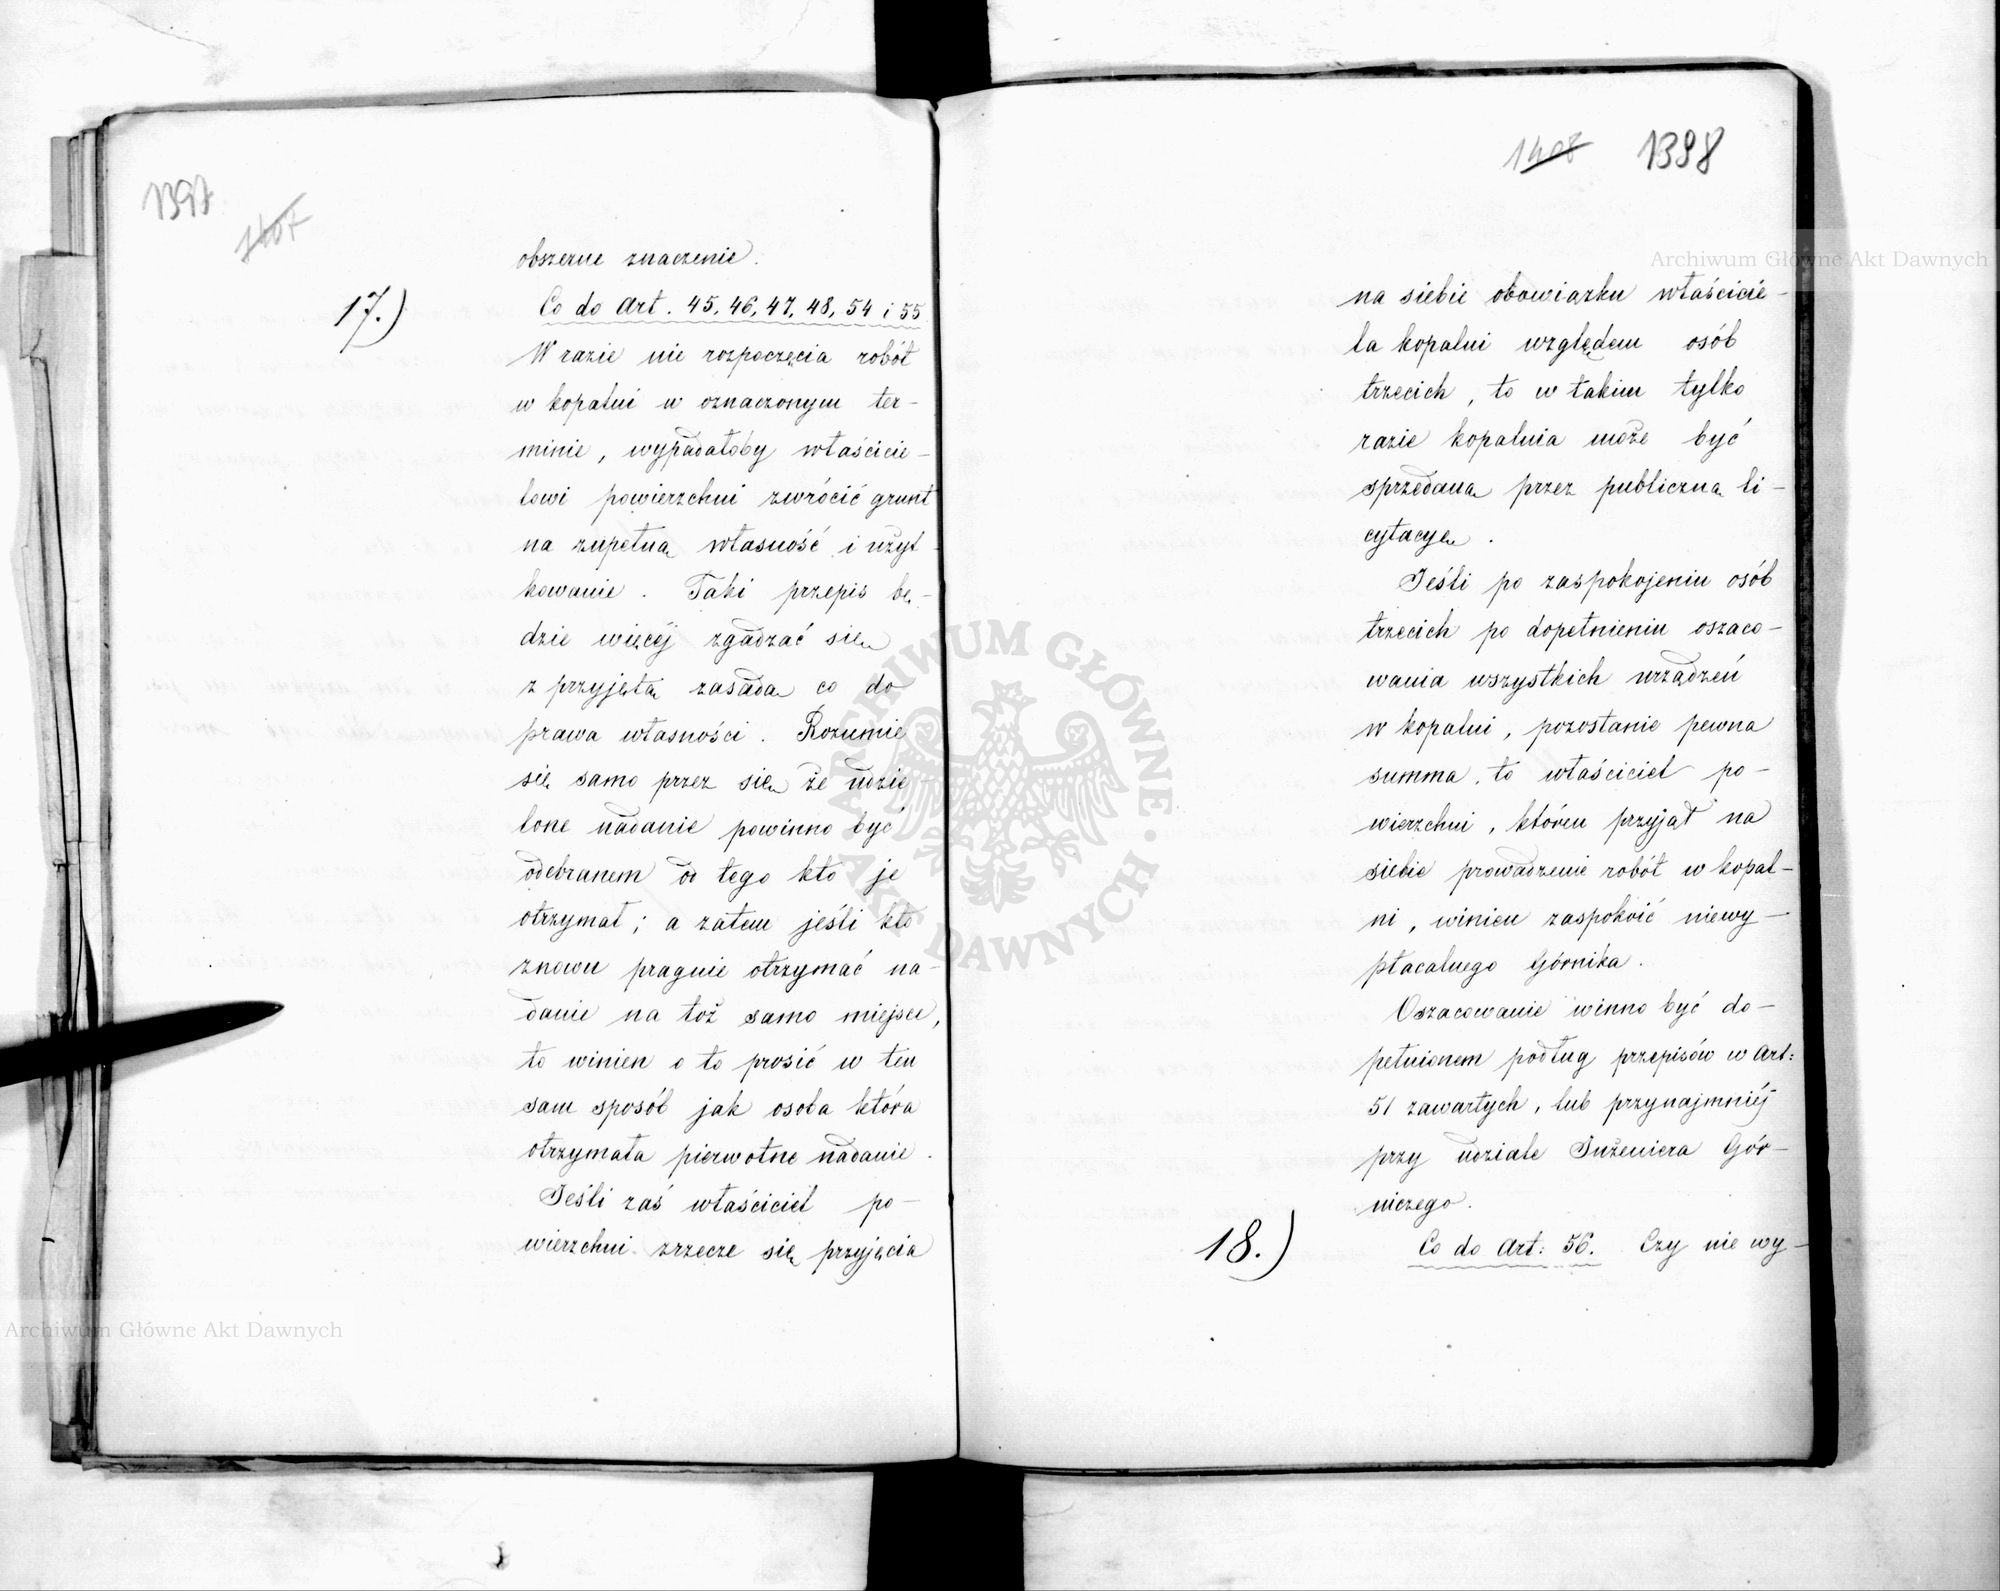 1397
1407
obszerne znaczenie.
17.)
Co do Art. 45, 46, 47, 48, 54 i 55
W razie nie rozpoczęcia robót
w kopalni w oznaczonym ter-
minie, wypadałoby właścicie-
lowi powierzchni zwrócić grunt
na zupełną własność i użyt-
kowanie. Taki przepis bę-
dzie więcéj zgadzać się
z przyjętą zasadą co do
prawa własności. Rozumie
się samo przez się że udzie-
lone nadanie powinno być
odebranem od tego kto je
otrzymał; a zatem jeśli kto
znowu pragnie otrzymać na-
danie na toż samo miejsce,
to winien o to prosić w ten
sam sposób jak osoba która
otrzymała pierwotne nadanie.
Jeśli zaś właściciel po-
wierzchni zrzecze się przyjęcia
1408 1398
na siebie obowiązku właścicie-
la kopalni względem osób
trzecich, to w takim tylko
razie kopalnia może być
sprzedaną przez publiczną li-
cytacyę.
Jeśli po zaspokojeniu osób
trzecich po dopełnieniu oszaco-
wania wszystkich urządzeń
w kopalni, pozostanie pewna
summa, to właściciel po-
wierzchni, któren przyjął na
siebie prowadzenie robót w kopal-
ni, winien zaspokoić niewy-
płacalnego Górnika.
Oszacowanie winno być do-
pełnionem podług przepisów w Art:
51 zawartych, lub przynajmniéj
przy udziale Inżeniera Gór-
niczego.
18.)
Co do Art: 56. Czy nie wy-
Archiwum Główne Akt Dawnych
Archiwum Główne Akt Dawnych
ARCHIWUM GŁÓWNE AKT DAWNYCH